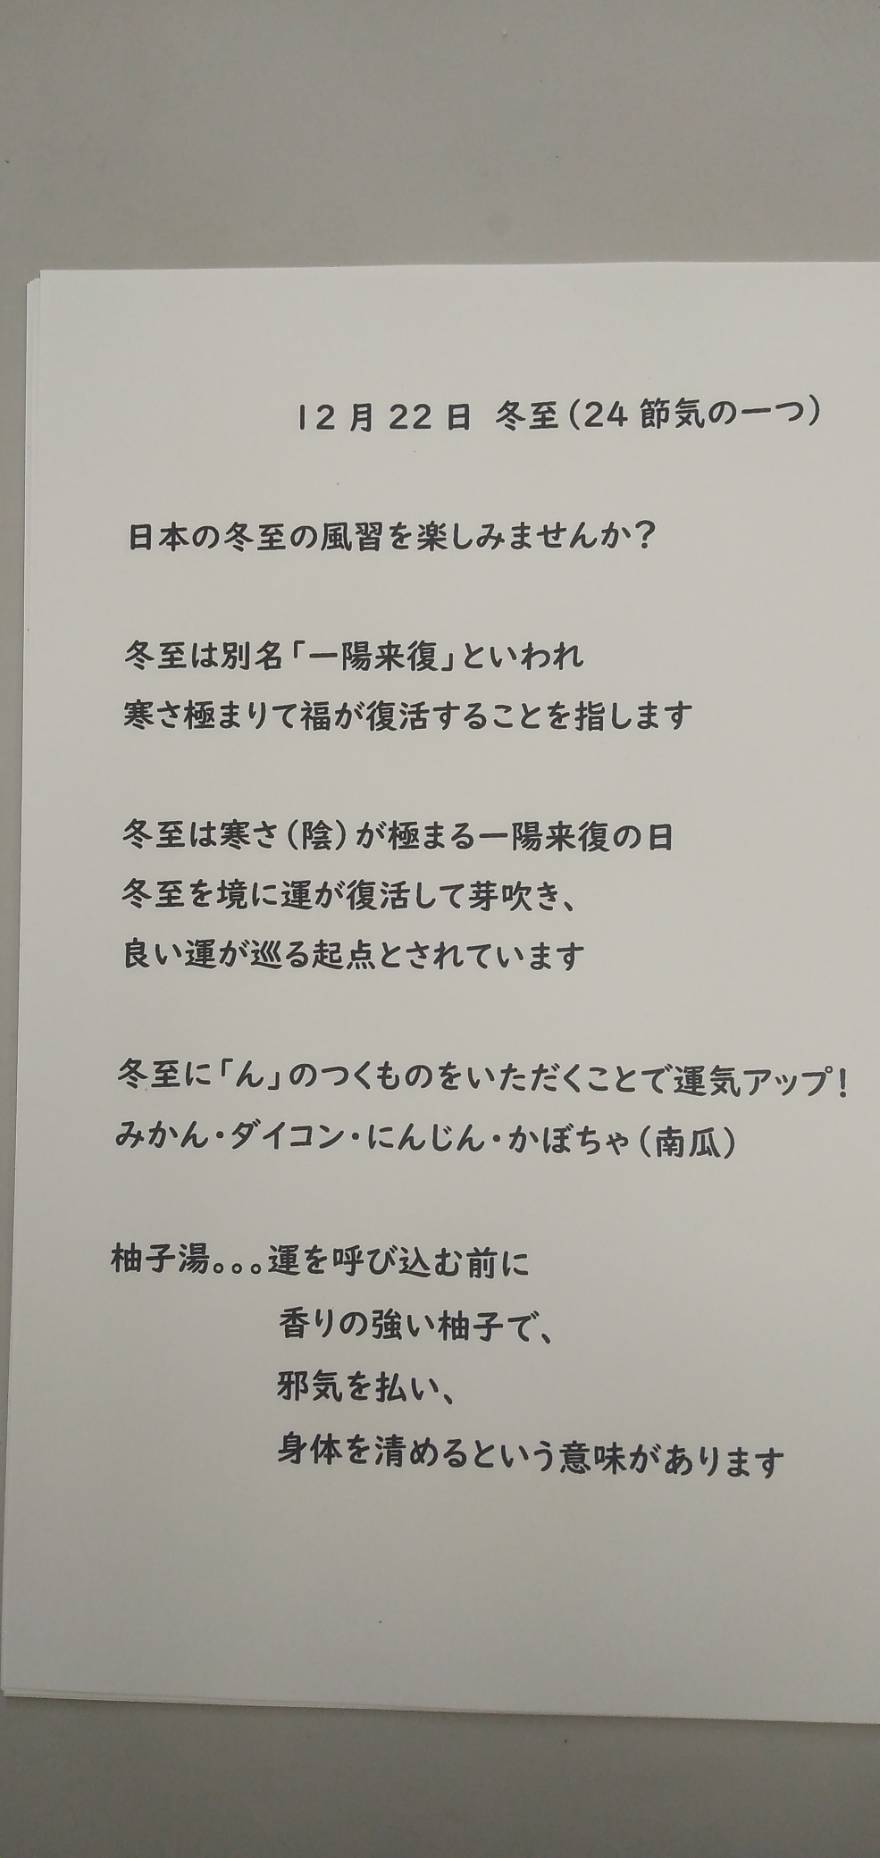 12月22日 冬至(24節気の一つ)
日本の冬至の風習を楽しみませんか?
冬至は別名「一陽来復」といわれ
寒さ極まりて福が復活することを指します
冬至は寒さ(陰)が極まる一陽来復の日
冬至を境に運が復活して芽吹き、
良い運が巡る起点とされています
冬至に「ん」のつくものをいただくことで運気アップ!
みかん・ダイコン・にんじん・かぼちゃ(南瓜)
柚子湯。。。運を呼び込む前に
香りの強い柚子で、
邪気を払い、
身体を清めるという意味があります